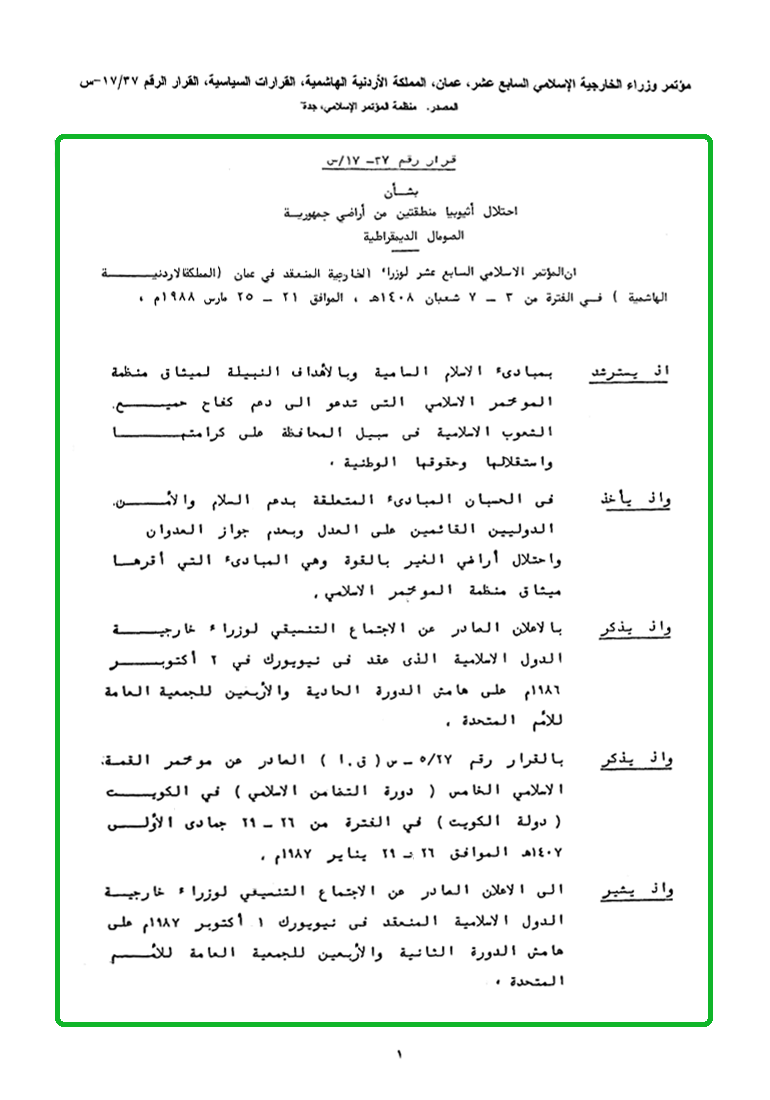 مؤتمر وزراء الخارجية الإسلامي السابع عشر، عمان، المملكة الأردنية الهاشمية، القرارات السياسية، القرار الرقم ١٧/٣٧-س
المصدر. منظمة المؤتمر الإسلامي، جدة
قرار رقم ٣٧- ١٧/س
بشأن
احتلال أثيوبيا منطقتين من أراضي جمهورية
الصومال الديمقراطية
ان المؤتمر الاسلامي السابع عشر لوزراء الخارجية المنعقد في عمان (المملكة الاردنية
الهاشمية ) في الفترة من ٣ - ٧ شعبان ١٤٠٨هـ ، الموافق ٢١ - ٢٥ مارس ١٩٨٨م ،
اذ يسترشد بمبادىء الاسلام السامية وبالأهداف النبيلة لميثاق منظمة
المؤتمر الاسلامي التى تدعو الى دعم كفاح جميع
الشعوب الاسلامية فى سبيل المحافظة على كرامتها
واستقلالها وحقوقها الوطنية ،
واذ يأخذ فى الحسبان المبادىء المتعلقة بدعم السلام والأمن
الدوليين القائمين على العدل وبعدم جواز العدوان
واحتلال أراضي الغير بالقوة وهي المبادىء التي أقرها
ميثاق منظمة المؤتمر الاسلامي ،
واذ يذكر بالاعلان الصادر عن الاجتماع التنسيقي لوزراء خارجية
الدول الاسلامية الذى عقد فى نيويورك في ٢ أكتوبر
١٩٨٦م على هامش الدورة الحادية والأربعين للجمعية العامة
للأمم المتحدة ،
واذ يذكر بالقرار رقم ٥/٢٧ - س ( ق.ا ) الصادر عن مؤتمر القمة
الاسلامي الخامس ( دورة التضامن الاسلامي ) في الكويت
( دولة الكويت ) في الفترة من ٢٦ - ٢٩ جمادى الأولى
١٤٠٧هـ الموافق ٢٦ - ٢٩ يناير ١٩٨٧م ،
واذ يشير الى الاعلان الصادر عن الاجتماع التنسيقي لوزراء خارجية
الدول الاسلامية المنعقد فى نيويورك ١ أكتوبر ١٩٨٧م على
هامش الدورة الثانية والأربعين للجمعية العامة للأمم
المتحدة ،
١